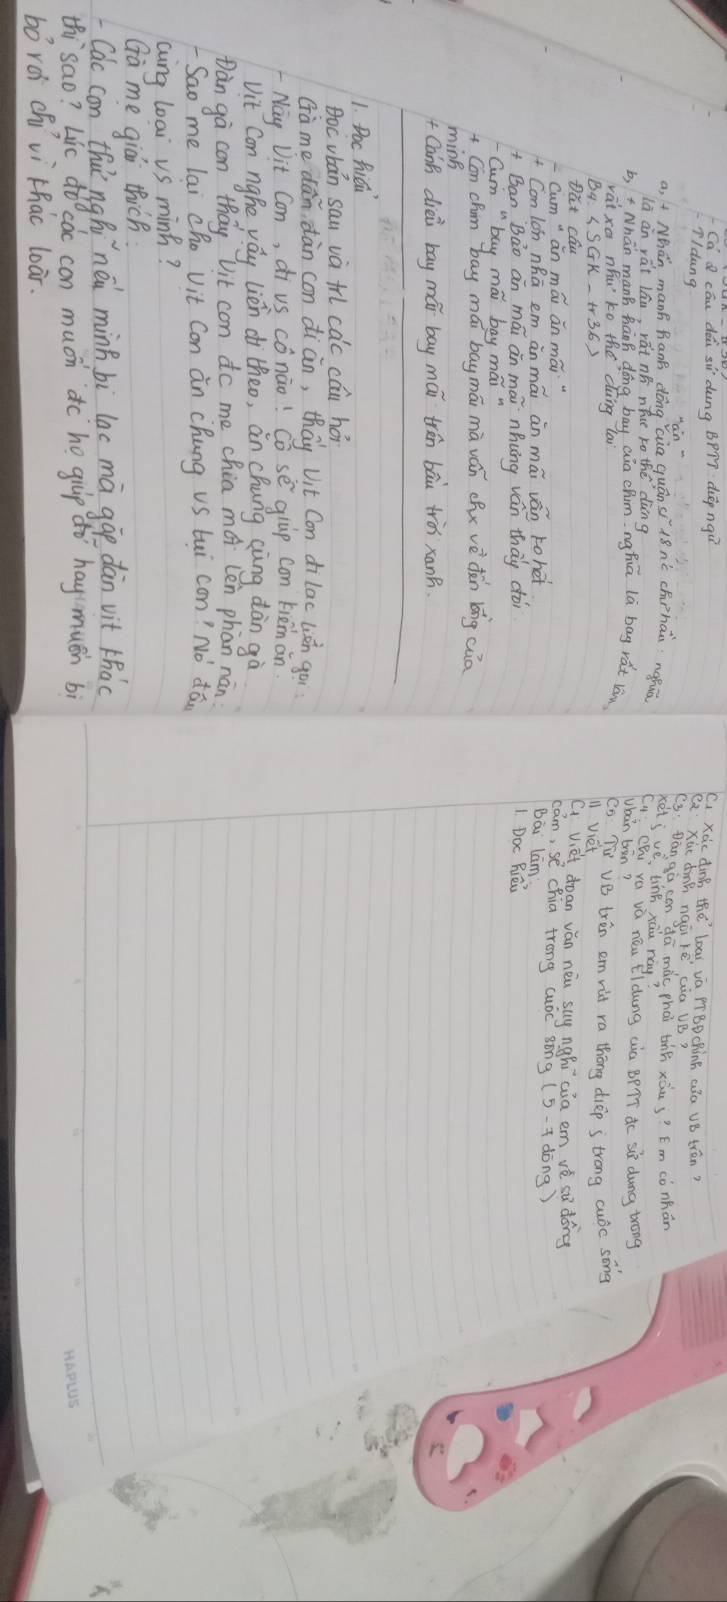 - Cả 2 câu đều sử dụng BPTT điệp ngữ
- T/dụng "ăn"
a, + Nhấn mạnh hành động của quân sĩ 18 nc chư hầu: nghĩa
là ăn rất lâu, rất nh như ko thể dừng
b, + Nhấn mạnh hành động bay của chim. nghĩa là bay rất lâu,
rất xa như ko thể dừng lại
B4. (SGK - tr36)
Đặt câu
- Cụm "ăn mãi ăn mãi"
+ Con lợn nhà em ăn mãi ăn mãi vẫn ko hết.
+ Bạn Bảo ăn mãi ăn mãi nhưng vẫn thấy đói.
- Cụm "bay mãi bay mãi"
+ Con chim bay mãi bay mãi mà vẫn chx về đến lồng của
mình
+ Cánh diều bay mãi bay mãi trên bầu trời xanh.
1. Đọc hiểu
Đọc vbản sau và trl các câu hỏi
Gà mẹ dẫn đàn con đi ăn, thấy Vịt Con đi lạc liền gọi:
- Này Vịt Con, đi vs cô nào! Cô sẽ giúp con kiếm ăn.
Vịt Con nghe vậy liền đi theo, ăn chung cùng đàn gà.
Đàn gà con thấy Vịt con đc mẹ chia mồi lên phàn nàn:
- Sao mẹ lại cho Vịt Con ăn chung vs tụi con? Nó đâu
cùng loại vs mình?
Gà mẹ giải thích:
- Các con thử nghĩ nếu mình bị lạc mà gặp đàn vịt khác
thì sao? Lúc đó các con muốn đc họ giúp đỡ hay muốn bị
bỏ rơi chỉ vì khác loài.
C1 Xác định thể loại và PTBĐ chính của VB trên?
C2. Xác định ngôi kể của VB?
C3. Đàn gà con đã mắc phải tính xấu j? Em có nhận
xét j về tính xấu này?
C4: Chỉ ra và nêu t/dụng của BPTT đc sử dụng trong
vbản trên?
C5: Từ VB trên em rút ra thông điệp j trong cuộc sống
II Viết
C1 Viết đoạn văn nêu suy nghĩ của em về sự đồng
cảm, sẻ chia trong cuộc sống (5 - 7 dòng)
Bài làm:
1. Đọc hiểu
HAPLUS